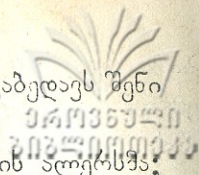 აბედავს შენი
ეროვნული
ბიბლიოთეკა
ის ალერსშა;